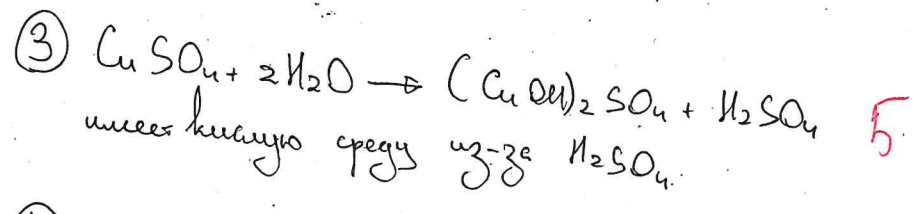 ③ CuSO₄ + 2H₂O → (CuOH)₂SO₄ + H₂SO₄ 5
имеет кислую среду из-за H₂SO₄.